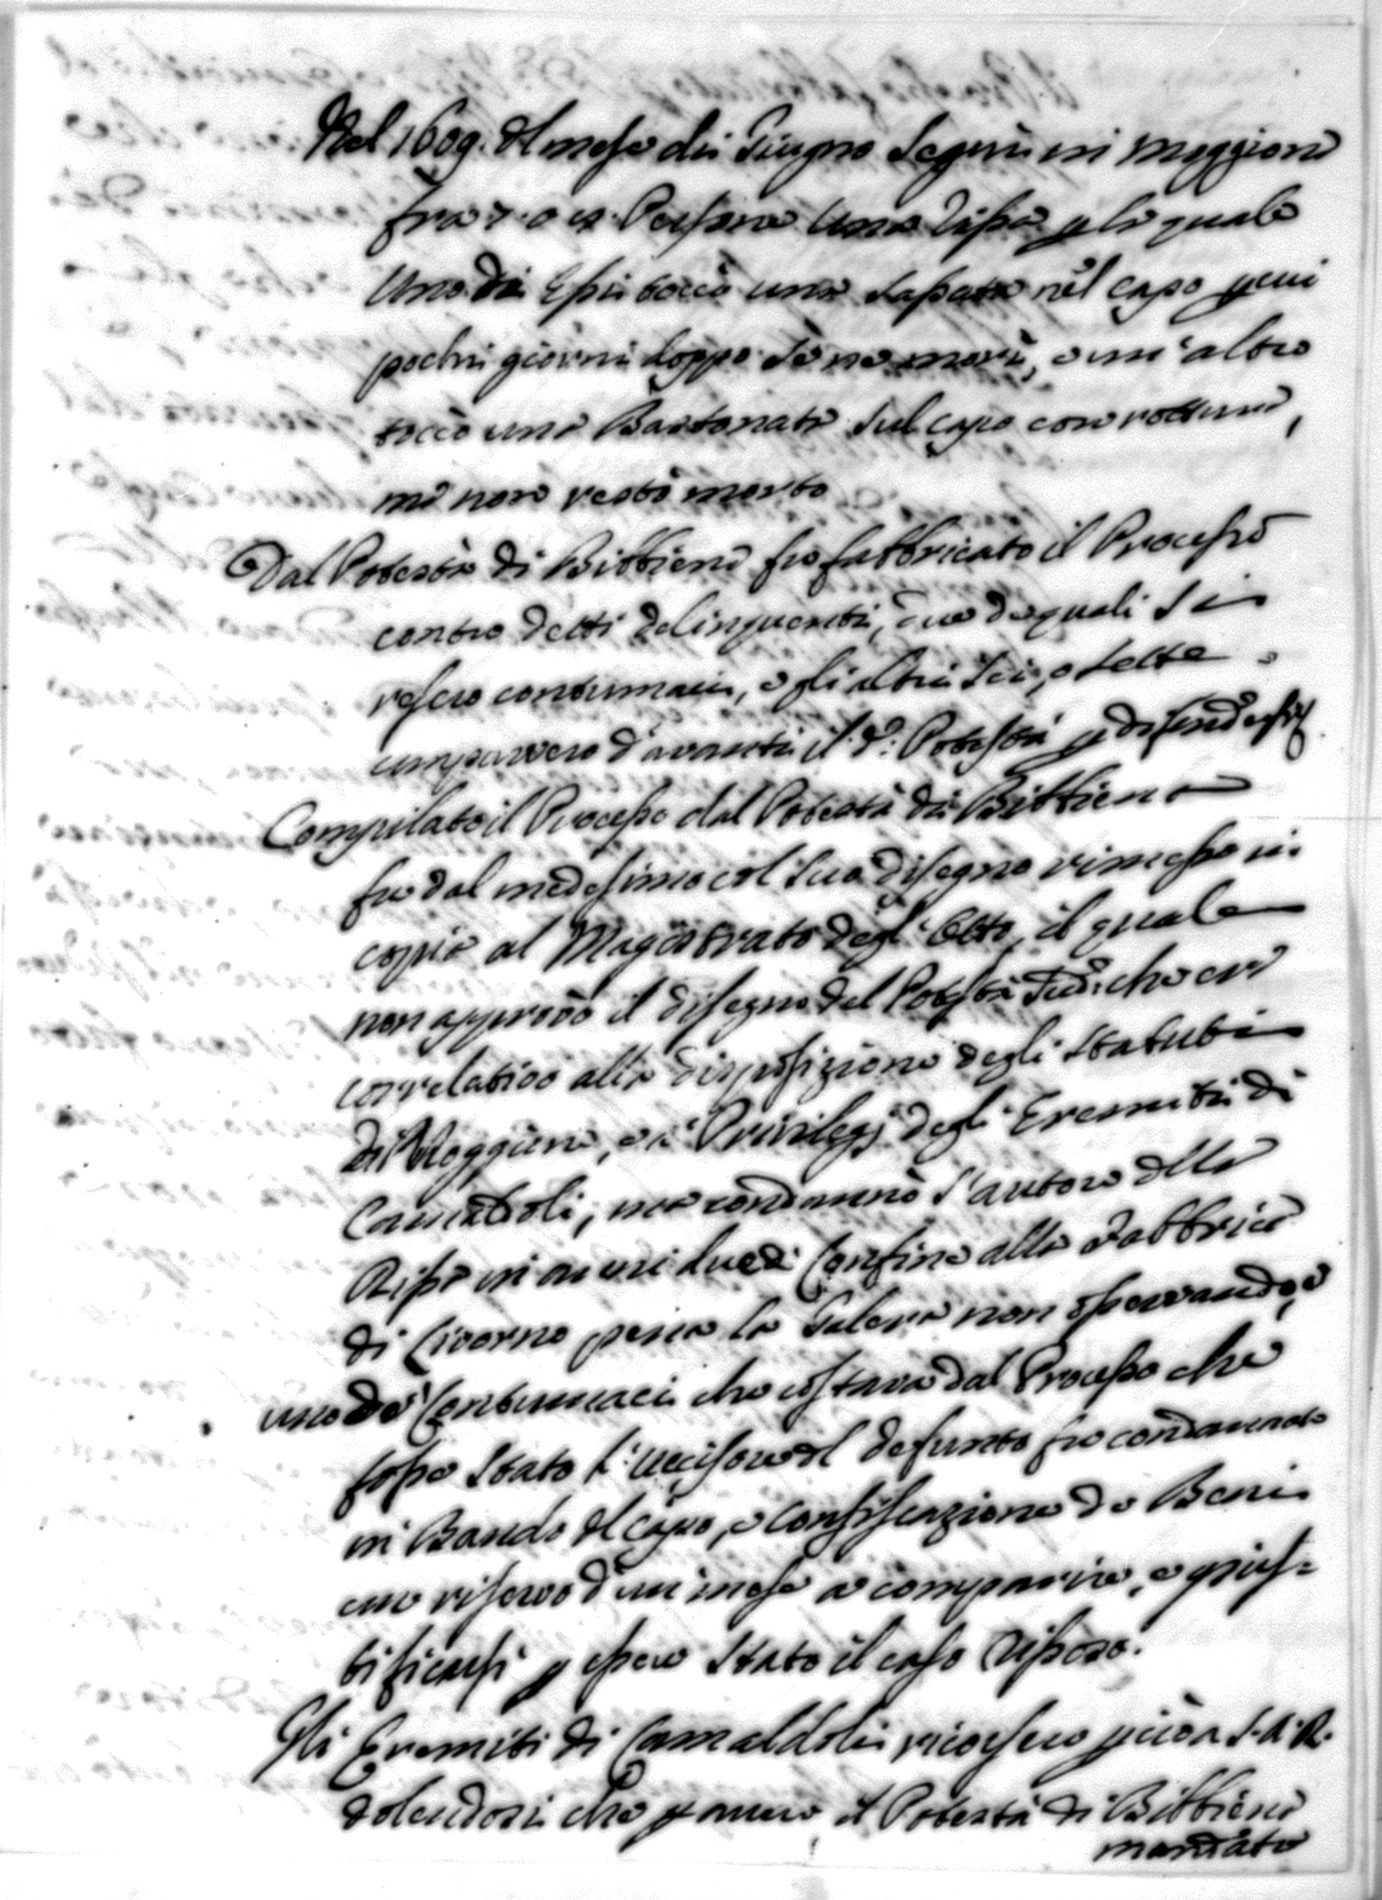 Nel 1609. del mese di Giugno Seguì in Moggiona
fra 7. o 8. Persone una Rissa p la quale
Uno di Essi toccò una Sassata nel capo p cui
pochi giorni doppo se ne morì, e un'altro
toccò una Bastonata sul capo con rottura,
ma non restò morto
Dal Potestà di Bibbiena fu fabbricato il Processo
contro detti delinquenti, due de quali si
resero contumaci, e gli altri sei, o sette
comparvero d'avanti il d.º Potestà p difendersi
Compilato il Processo dal Potestà di Bibbiena
fu dal medesimo col suo disegno rimesso in
copia al Magistrato degl'Otto, il quale
non approvò il disegno del Potestà Sud.º che era
correlativo alla disposizione degli Statuti
di Moggiona, e a' Privilegj degl'Eremiti di
Camaldoli, ma condannò l'autore della
Rissa in anni due di Confino alla Fabbrica
di Livorno pena la Galera non osservando, e
uno de' Contumaci che costava dal Processo che
fosse stato l'uccisore del defunto fu condannato
in Bando del capo, e confiscazione de Beni
con riservo d'un mese a comparire, e gius=
tificarsi p essere stato il caso rissoso.
Gli Eremiti di Camaldoli ricorsero perciò a S.A.R.
dolendosi che p avere il Potestà di Bibbiena
mandato